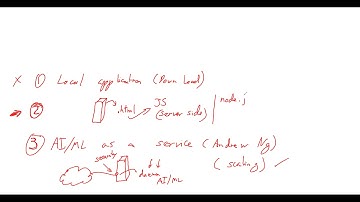 x ① Local application (Pawn Load)
② .html JS (server side) node.j
③ AI/ML as a service (Andrew Ng)
security daemon AI/ML (scaling) ✓